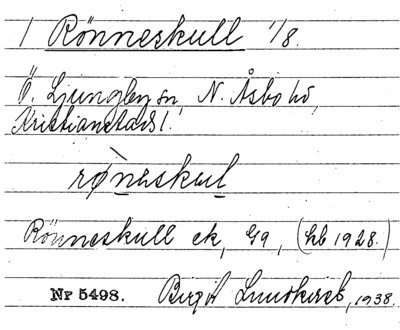 1 Rönneskull 1/8.
Ö. Ljungby sn, N. Åsbo hd,
Kristianstads l.
rø̀neskul
Rönneskull ek, Gg, (hb 1928.)
Nr 5498. Birgit Lundkvist, 1938.